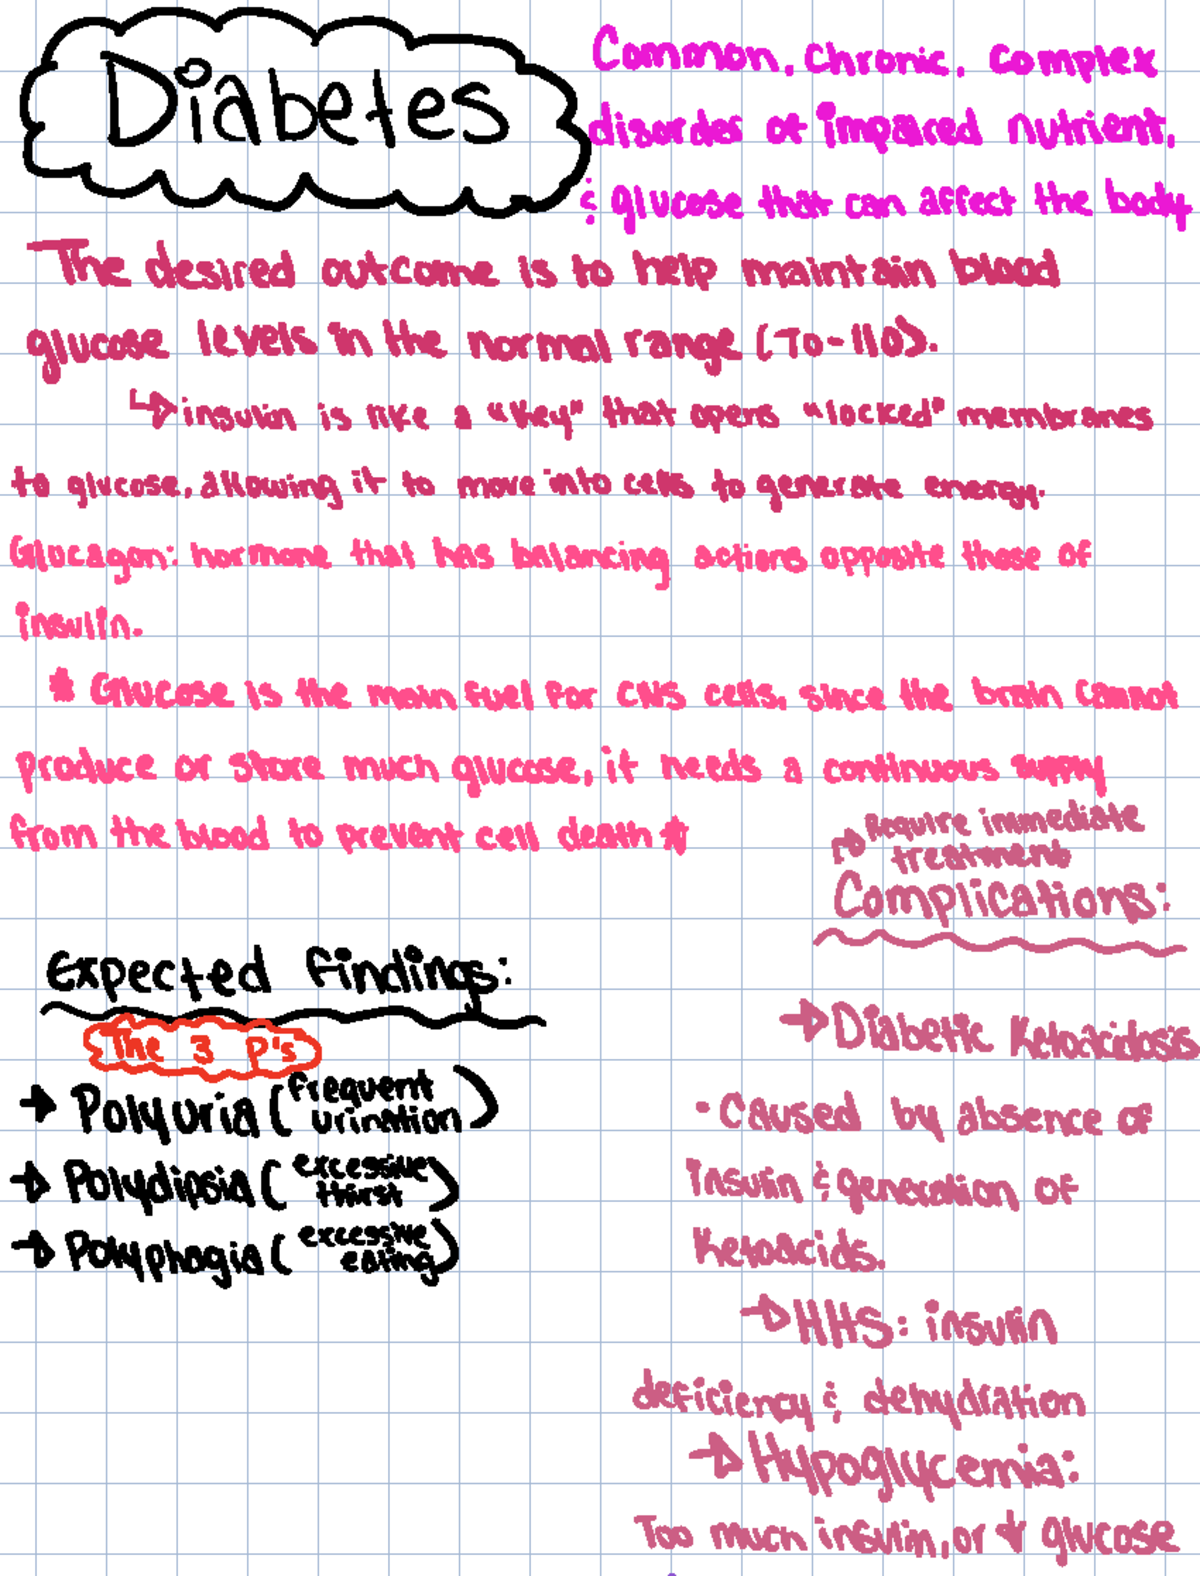 Diabetes
Common, chronic, complex
disordes of impaired nutrient,
& glucose that can affect the body
The desired outcome is to help maintain blood
glucose levels in the normal range (70-110).
↳ insulin is like a "Key" that opens "locked" membranes
to glucose, allowing it to move into cells to generate energy.
Glucagon: hormone that has balancing actions opposite those of
insulin.
* Glucose is the main fuel for CNS cells, since the brain cannot
produce or store much glucose, it needs a continuous supply
from the blood to prevent cell death *
Expected Findings:
The 3 P's
→ Polyuria (frequent
urination)
→ Polydipsia (excessive
thirst)
→ Polyphagia (excessive
eating)
→ Require immediate
treatment
Complications:
→ Diabetic Ketoacidosis
• Caused by absence of
insulin & generation of
Ketoacids.
→ HHS: insulin
deficiency & dehydration
→ Hypoglycemia:
Too much insulin, or ↓ glucose